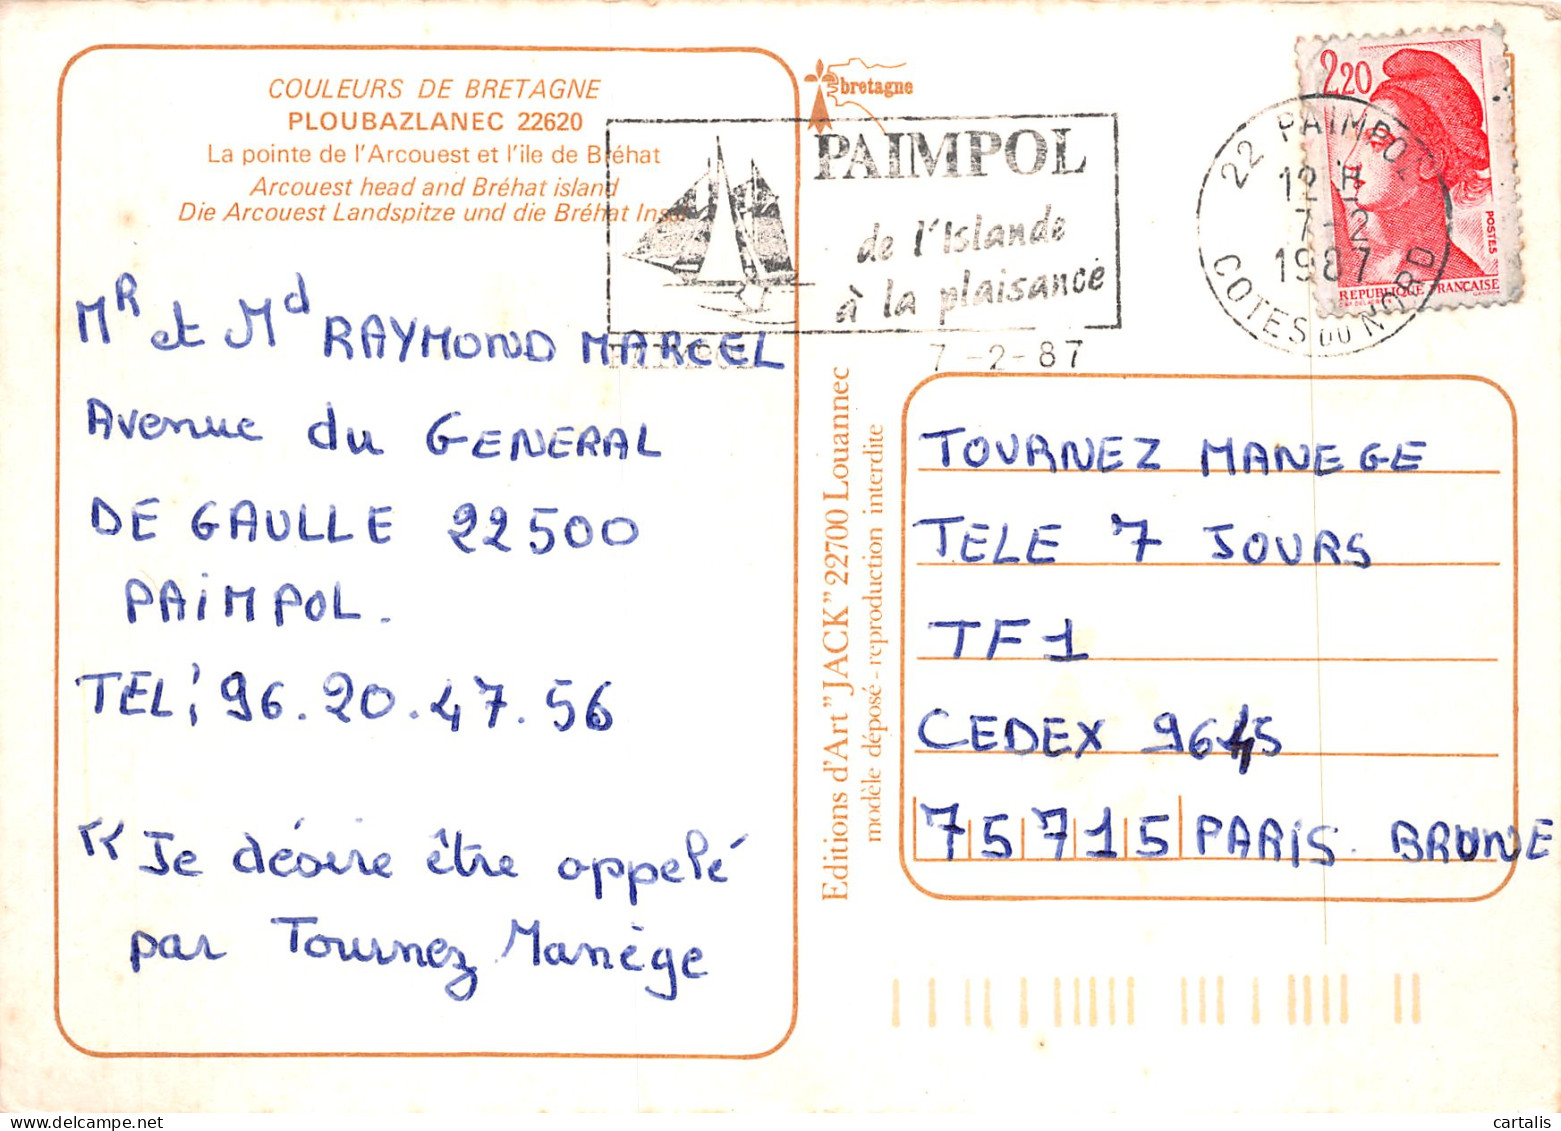 COULEURS DE BRETAGNE
PLOUBAZLANEC 22620
La pointe de l'Arcouest et l'ile de Bréhat
Arcouest head and Bréhat island
Die Arcouest Landspitze und die Bréhat Insel
MR et Md RAYMOND MARCEL
Avenue du GENERAL
DE GAULLE 22500
PAIMPOL.
TEL: 96.20.47.56
" Je désire être appelé
par Tournez Manège
bretagne
PAIMPOL
de l'Islande
à la plaisance
PAIMPOL
7-2-87
22 PAIMPOL
12 H
7-2
1987
COTES DU NORD
2,20
POSTES
REPUBLIQUE FRANÇAISE
Editions d'Art "JACK" 22700 Louannec
modèle déposé - reproduction interdite
TOURNEZ MANEGE
TELE 7 JOURS
TF1
CEDEX 9645
75715 PARIS BRUNE
cartalis